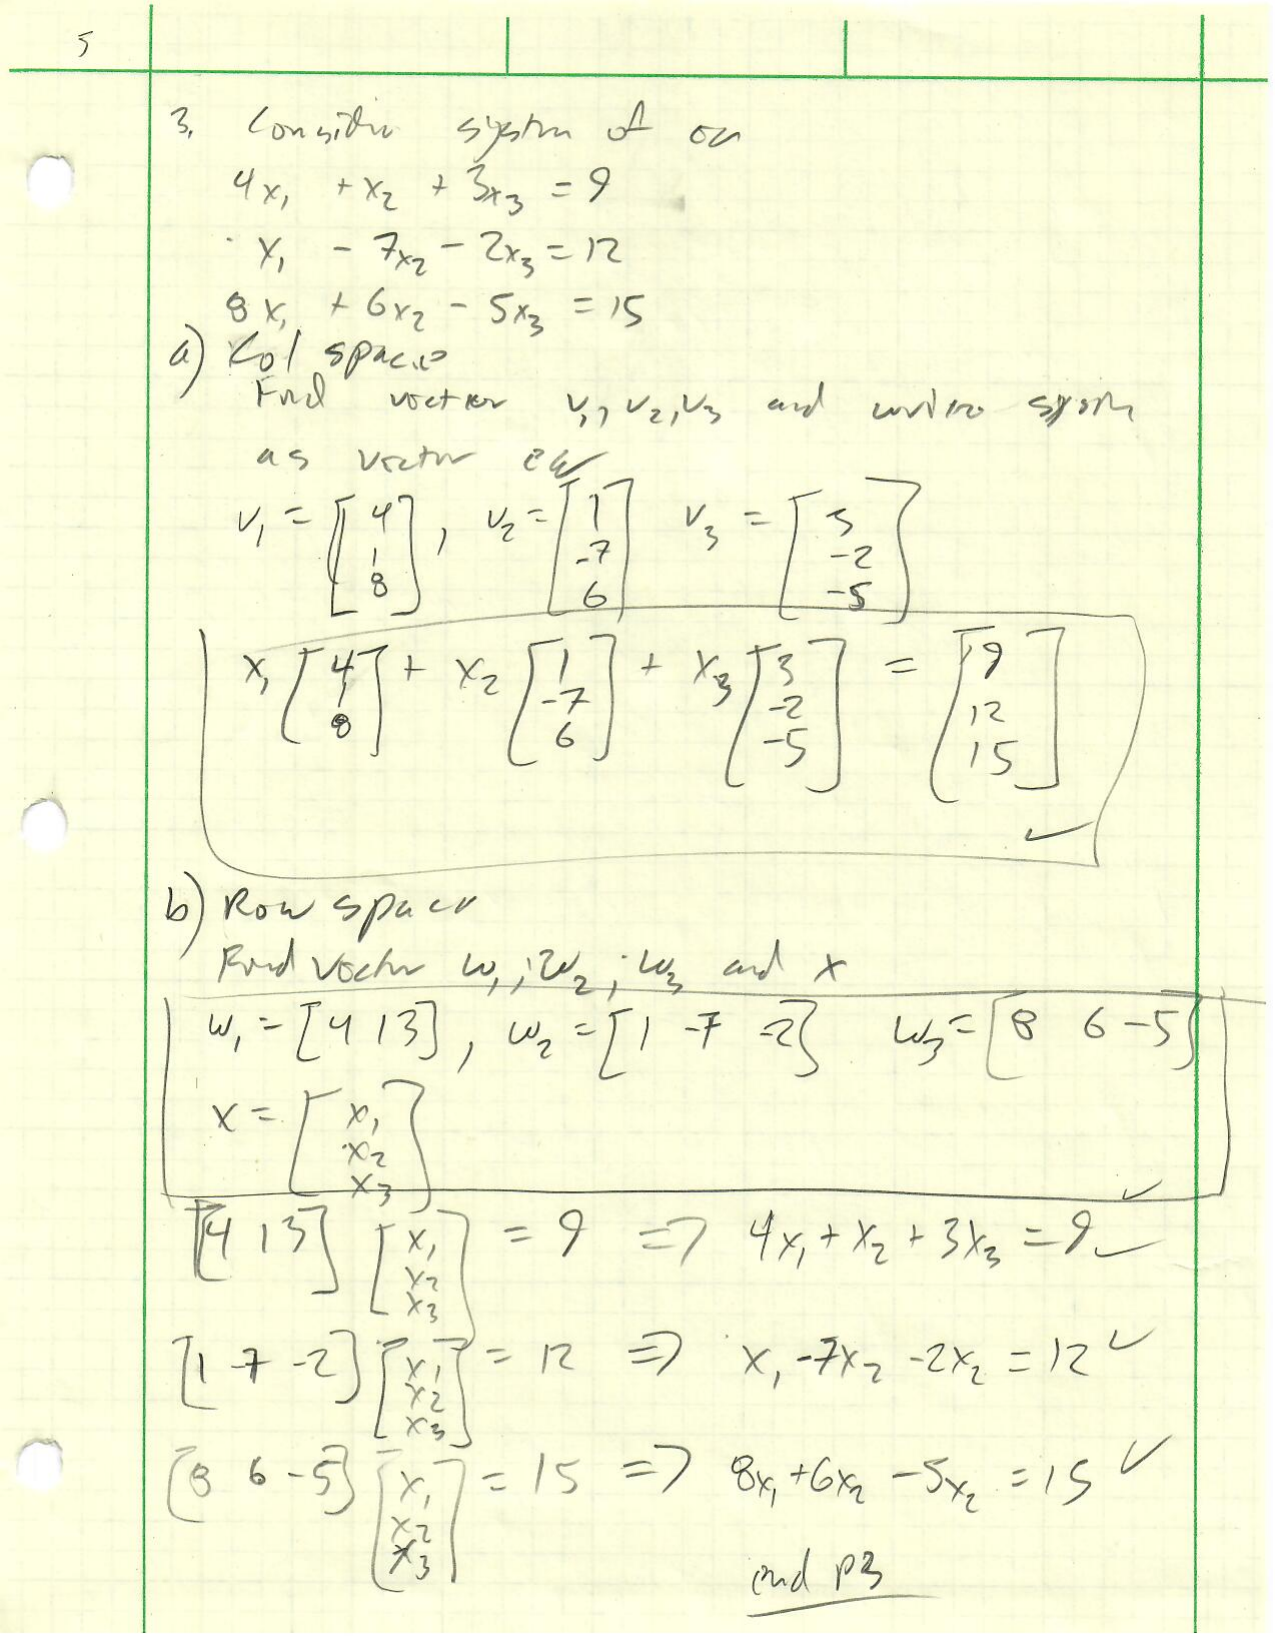 5
3. Consider system of eq
4x₁ + x₂ + 3x₃ = 9
x₁ - 7x₂ - 2x₃ = 12
8x₁ + 6x₂ - 5x₃ = 15
a) Col space
Find vector v₁, v₂, v₃ and write system
as vector eq
v₁ = [4 1 8], v₂ = [1 -7 6] v₃ = [3 -2 -5]
x₁ [4 1 8] + x₂ [1 -7 6] + x₃ [3 -2 -5] = [9 12 15] ✓
b) Row space
Find vector w₁; w₂; w₃ and x
w₁ = [4 1 3], w₂ = [1 -7 -2] w₃ = [8 6 -5]
x = [x₁ x₂ x₃] ✓
[4 1 3] [x₁ x₂ x₃] = 9 ⇒ 4x₁ + x₂ + 3x₃ = 9 ✓
[1 -7 -2] [x₁ x₂ x₃] = 12 ⇒ x₁ - 7x₂ - 2x₂ = 12 ✓
[8 6 -5] [x₁ x₂ x₃] = 15 ⇒ 8x₁ + 6x₂ - 5x₂ = 15 ✓
end P3